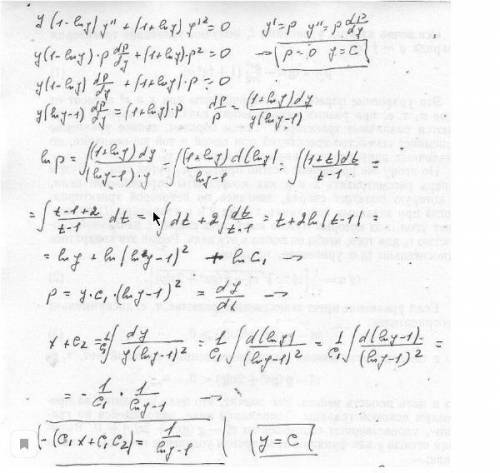 y(1-lny)y'' + (1+lny)y'²=0    y'=p  y''=p dp/dy
y(1-lny)·p dp/dy + (1+lny)·p²=0 → p=0 y=C
y(1-lny) dp/dy + (1+lny)·p=0
y(lny-1) dp/dy = (1+lny)·p    dp/p = (1+lny)dy / y(lny-1)
lnp = ∫ (1+lny)dy / (lny-1)·y = ∫ (1+lny)d(lny) / lny-1 = ∫ (1+t)dt / t-1 =
= ∫ t-1+2 / t-1 dt = ∫dt + 2∫ dt / t-1 = t+2ln|t-1| =
= lny + ln(lny-1)² + lnC₁ →
p = y·C₁·(lny-1)² = dy/dx →
x+C₂ = 1/C₁ ∫ dy / y(lny-1)² = 1/C₁ ∫ d(lny) / (lny-1)² = 1/C₁ ∫ d(lny-1) / (lny-1)² =
= - 1/C₁ · 1/lny-1 →
-(C₁x+C₁C₂) = 1/lny-1    y=C